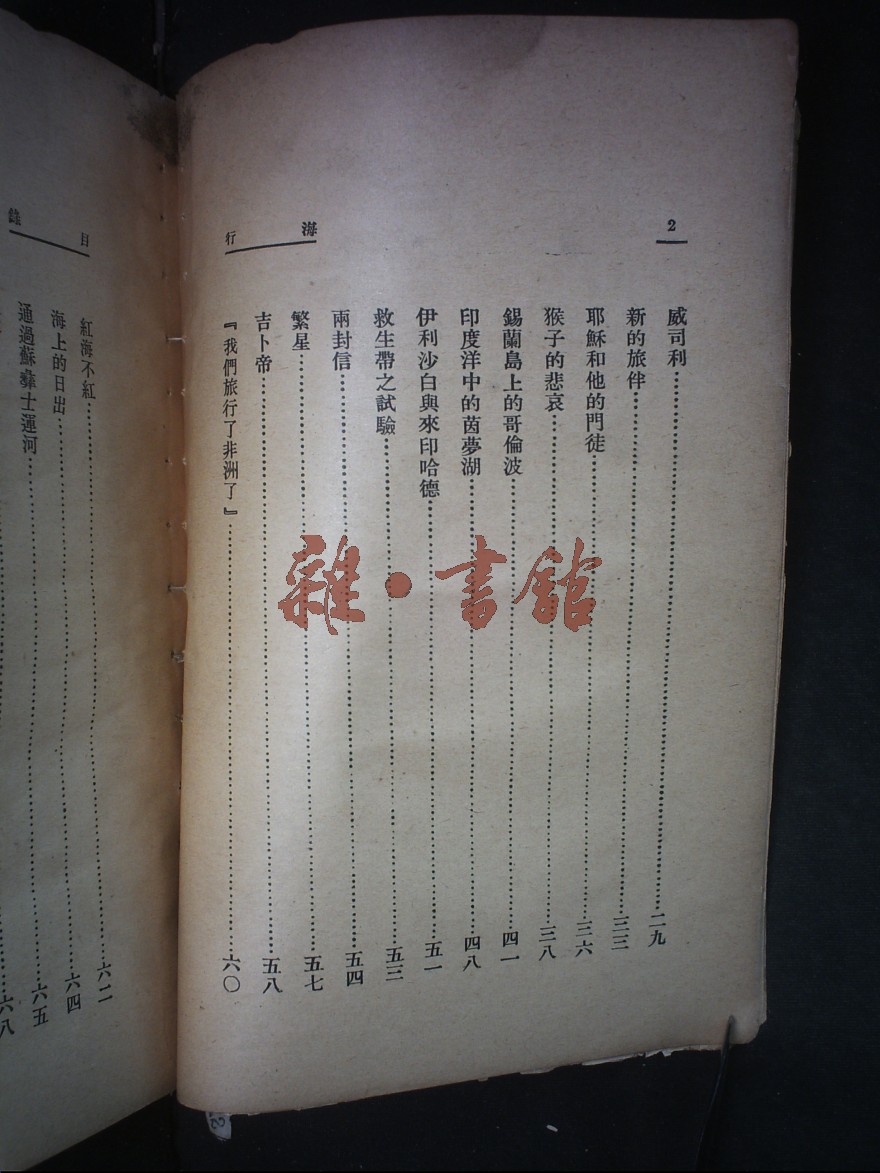 2
海行
威司利⋯⋯二九
新的旅伴⋯⋯三三
耶穌和他的門徒⋯⋯三六
猴子的悲哀⋯⋯三八
錫蘭島上的哥倫波⋯⋯四一
印度洋中的茵夢湖⋯⋯四八
伊利沙白與來印哈德⋯⋯五一
救生帶之試驗⋯⋯五三
兩封信⋯⋯五四
繁星⋯⋯五七
吉卜帝⋯⋯五八
『我們旅行了非洲了』⋯⋯六〇
目錄
紅海不紅⋯⋯六二
海上的日出⋯⋯六四
通過蘇彝士運河⋯⋯六五
六八
雜·書館